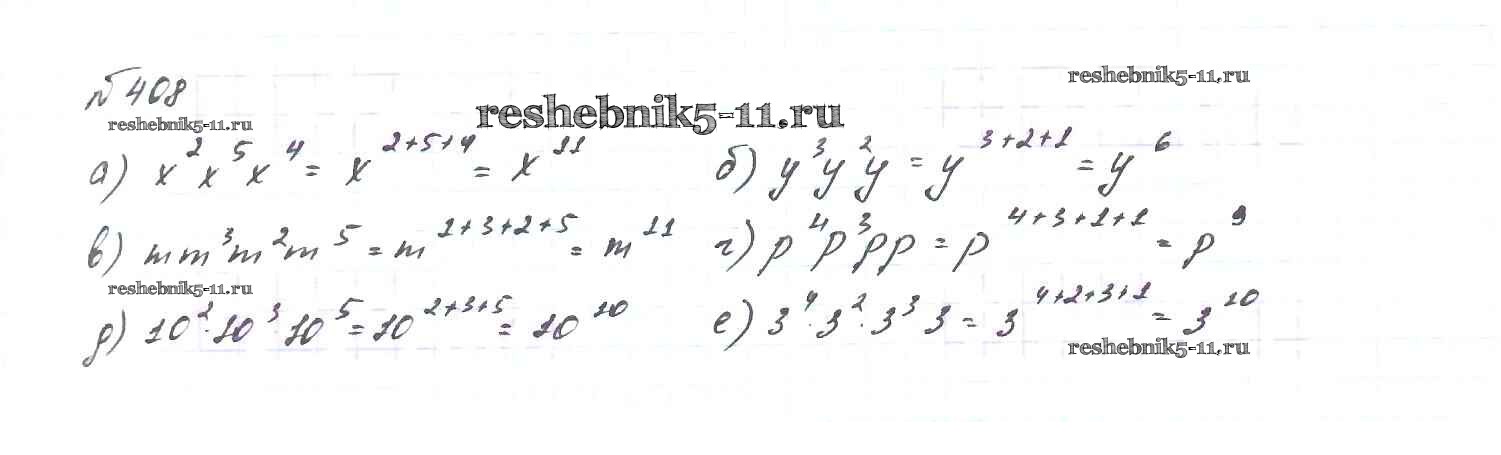 № 408
reshebnik5-11.ru
reshebnik5-11.ru
reshebnik5-11.ru
а) x² x⁵ x⁴ = x²⁺⁵⁺⁴ = x¹¹ б) y³ y² y = y³⁺²⁺¹ = y⁶
в) m m³ m² m⁵ = m¹⁺³⁺²⁺⁵ = m¹¹ г) p⁴ p³ p p = p⁴⁺³⁺¹⁺¹ = p⁹
reshebnik5-11.ru
д) 10² · 10³ · 10⁵ = 10²⁺³⁺⁵ = 10¹⁰ е) 3⁴ · 3² · 3³ 3 = 3⁴⁺²⁺³⁺¹ = 3¹⁰
reshebnik5-11.ru